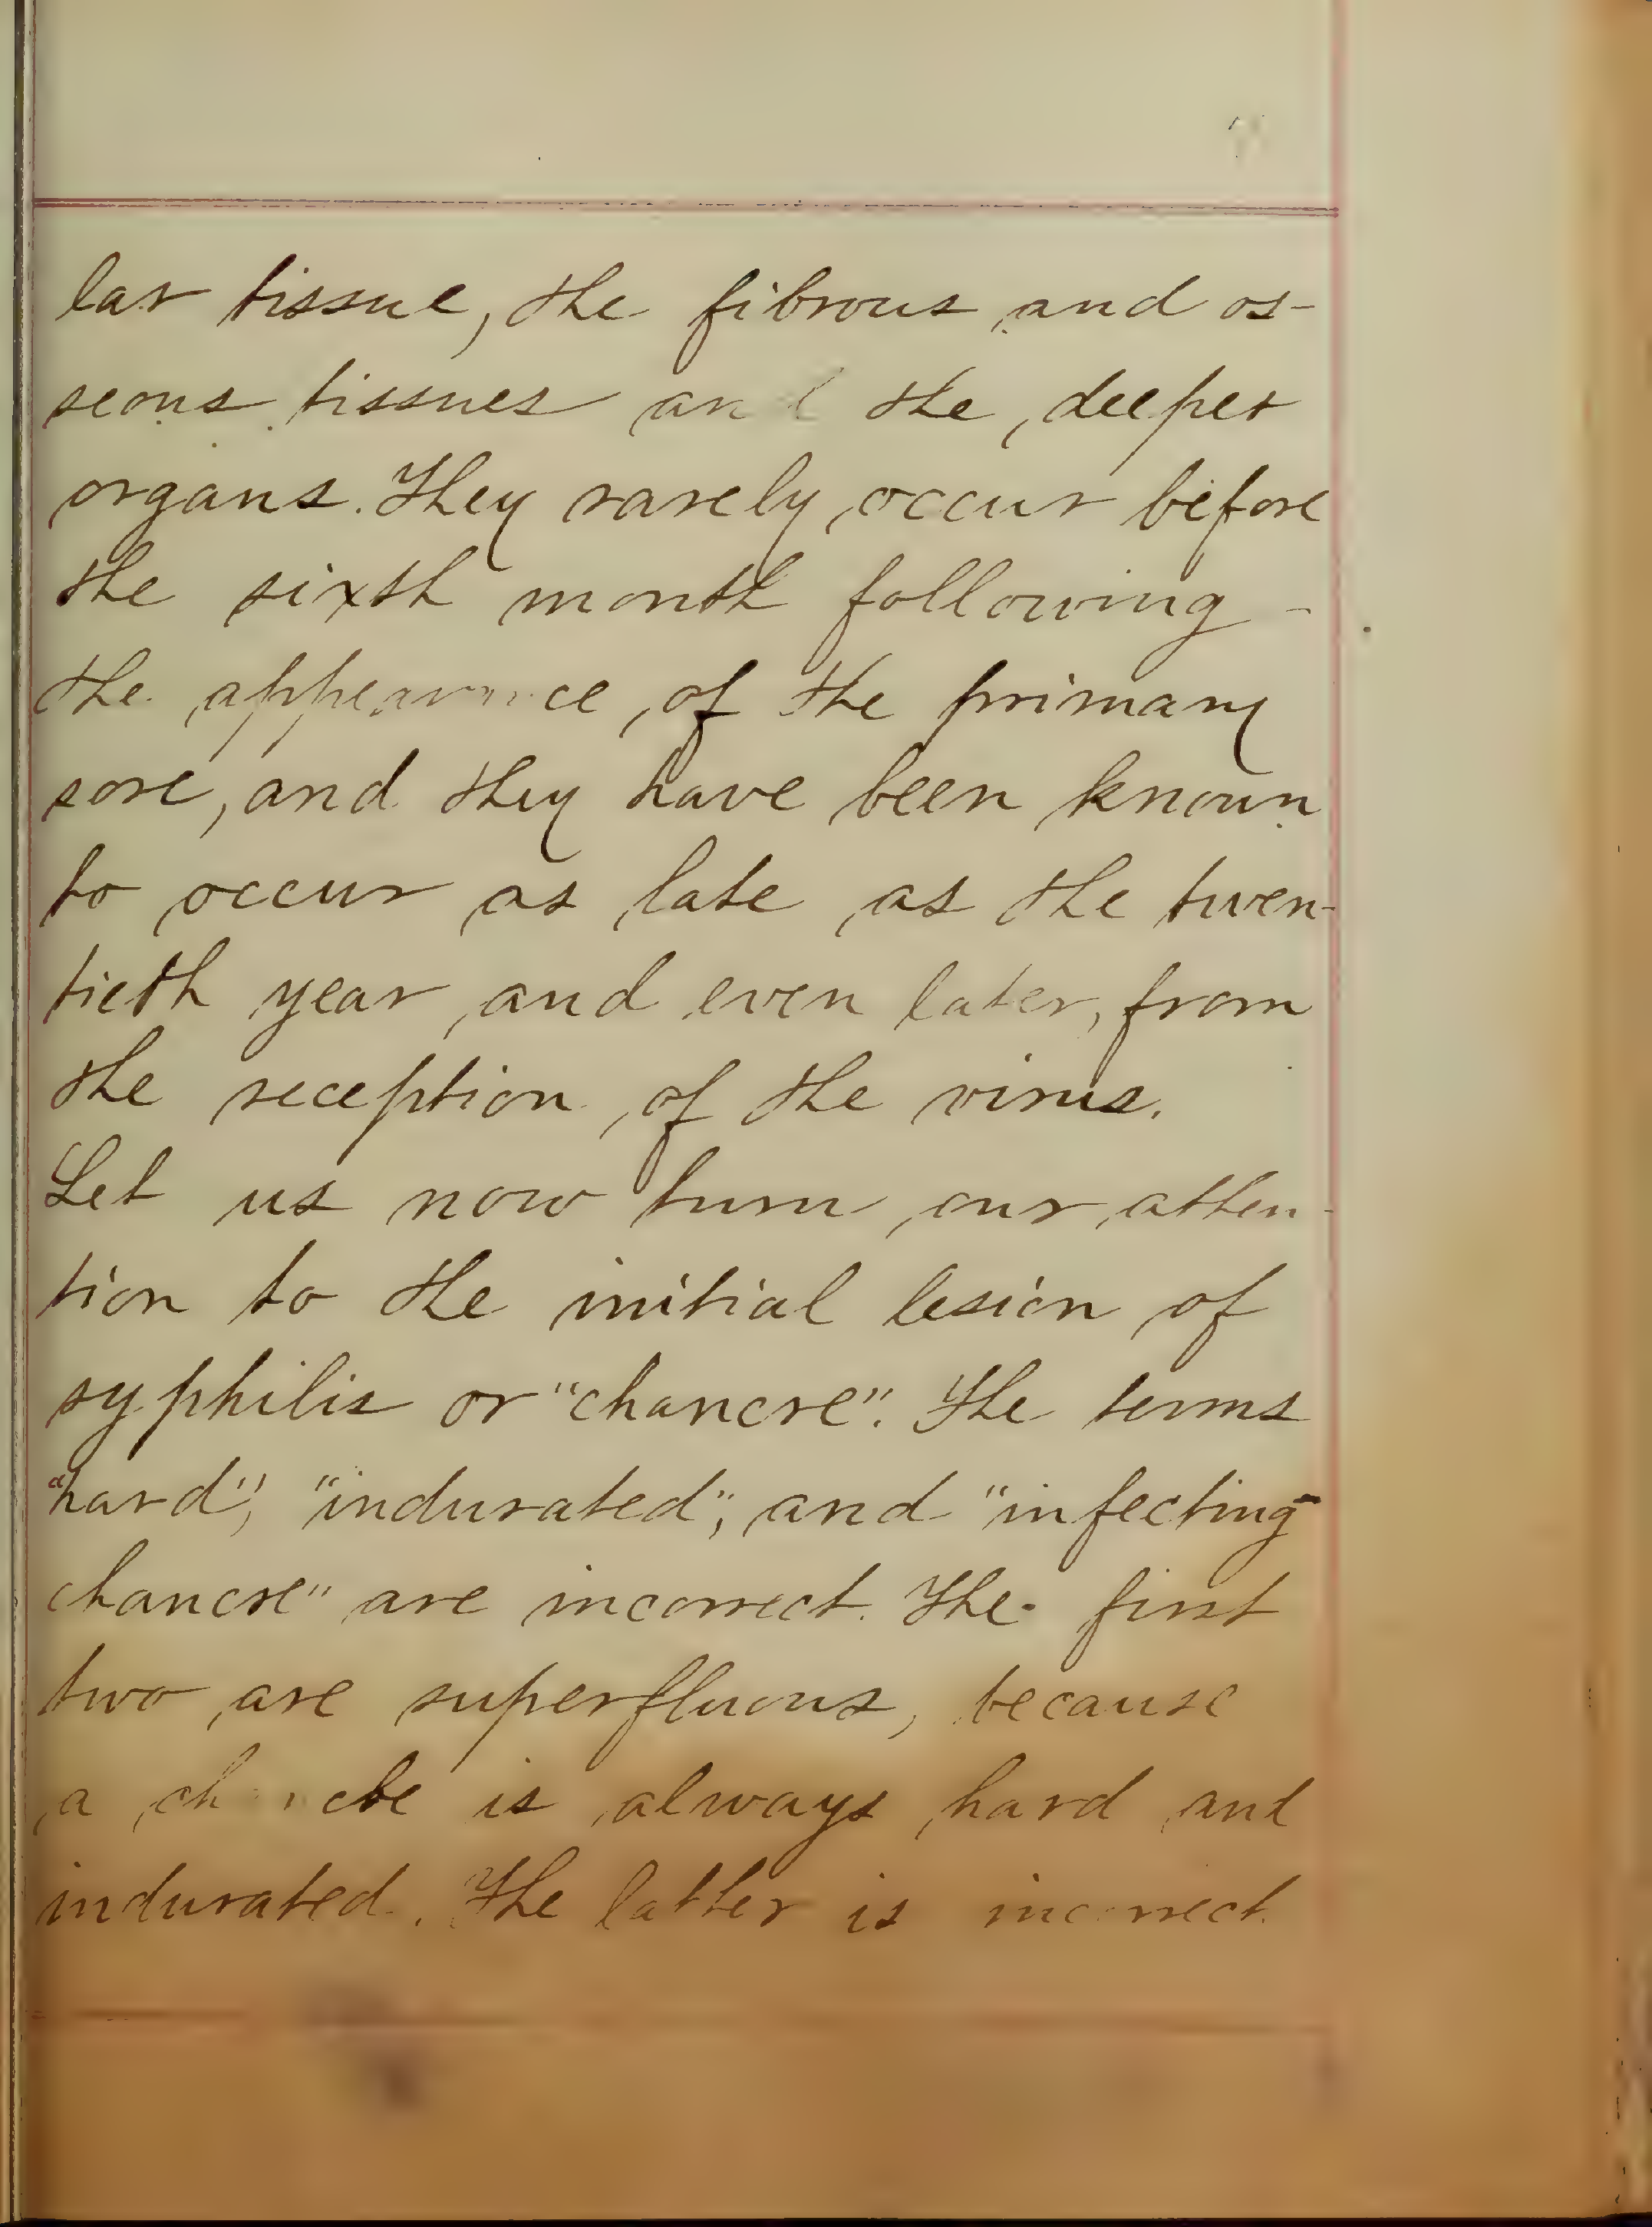 lar tissue, the fibrous and os-
seous tissues and the deeper
organs. They rarely occur before
the sixth month following -
the appearance of the primary
sore, and they have been known
to occur as late as the twen-
tieth year and even later, from
the reception of the virus.
Let us now turn our atten-
tion to the initial lesion of
syphilis or "chancre". The terms
"hard", "indurated", and "infecting
chancre" are incorrect. The first
two are superfluous, because
a is always hard and
indurated. The latter is incorrect